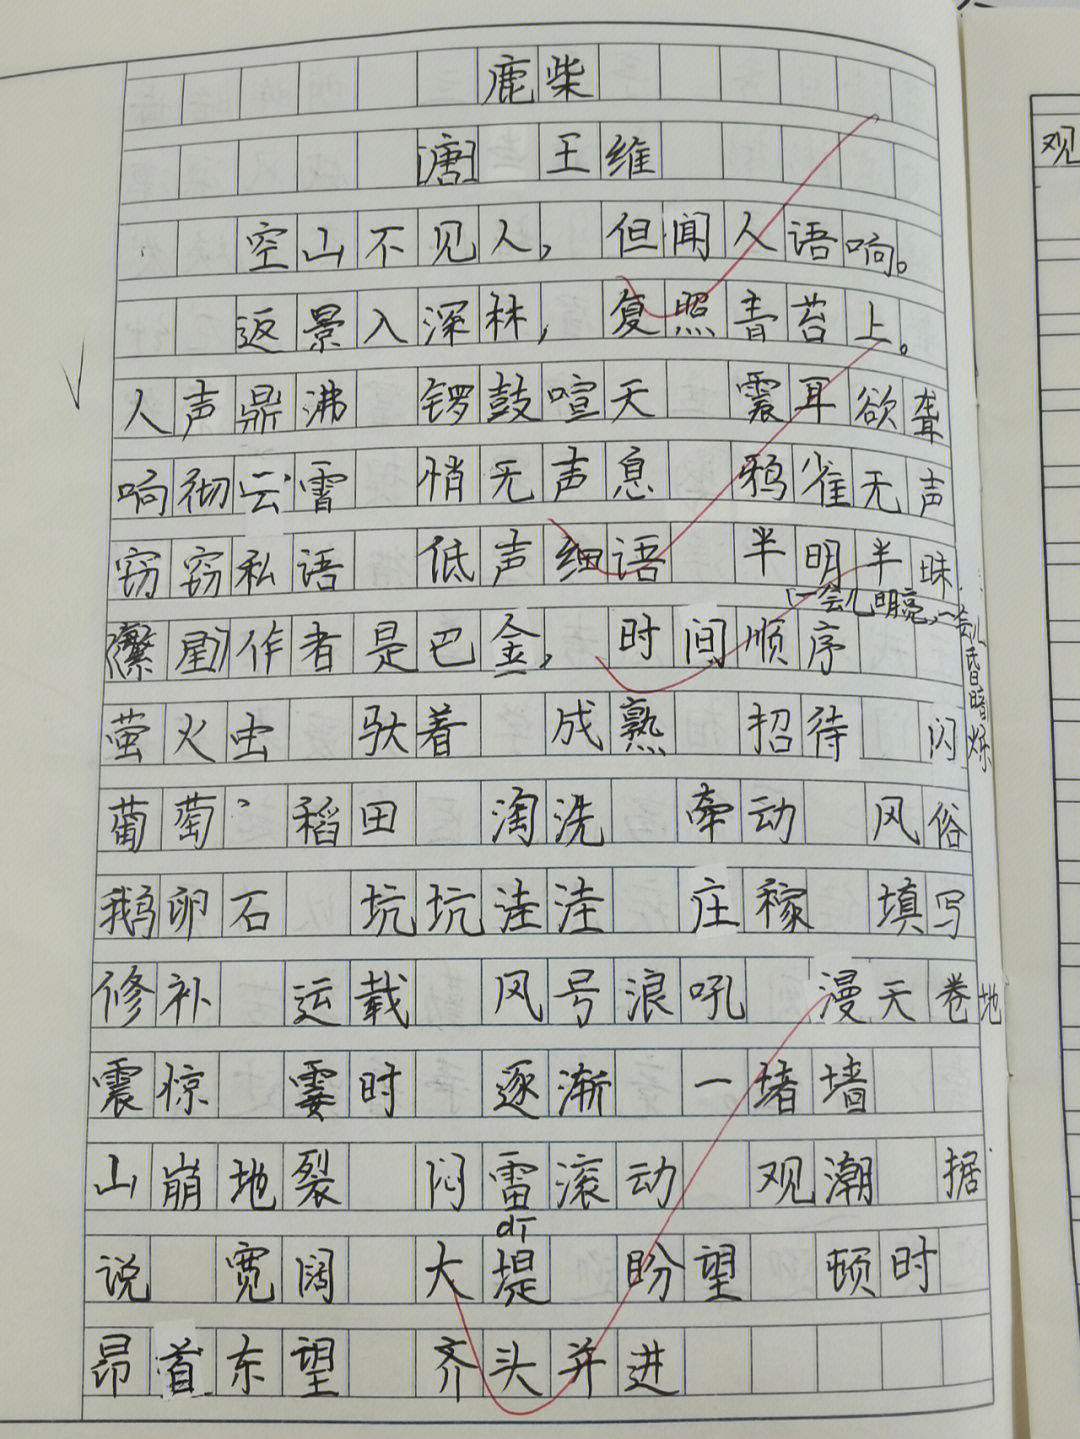 鹿柴
[唐] 王维
空山不见人,但闻人语响。
返景入深林,复照青苔上。
人声鼎沸 锣鼓喧天 震耳欲聋
响彻云霄 悄无声息 鸦雀无声
窃窃私语 低声细语 半明半昧
(一会儿明亮,一会儿昏暗
《繁星》作者是巴金,时间顺序
萤火虫 驮着 成熟 招待 闪烁
葡萄 稻田 淘洗 牵动 风俗
鹅卵石 坑坑洼洼 庄稼 填写
修补 运载 风号浪吼 漫天卷地
震惊 霎时 逐渐 一堵墙
山崩地裂 闷雷滚动 观潮 据
dī
说 宽阔 大堤 盼望 顿时
昂首东望 齐头并进
观